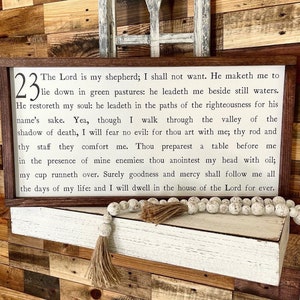 23 The Lord is my shepherd; I shall not want. He maketh me to
lie down in green pastures: he leadeth me beside still waters.
He restoreth my soul: he leadeth in the paths of the righteousness for his
name's sake. Yea, though I walk through the valley of the
shadow of death, I will fear no evil: for thou art with me; thy rod and
thy staff they comfort me. Thou preparest a table before me
in the presence of mine enemies: thou anointest my head with oil;
my cup runneth over. Surely goodness and mercy shall follow me all
the days of my life: and I will dwell in the house of the Lord for ever.